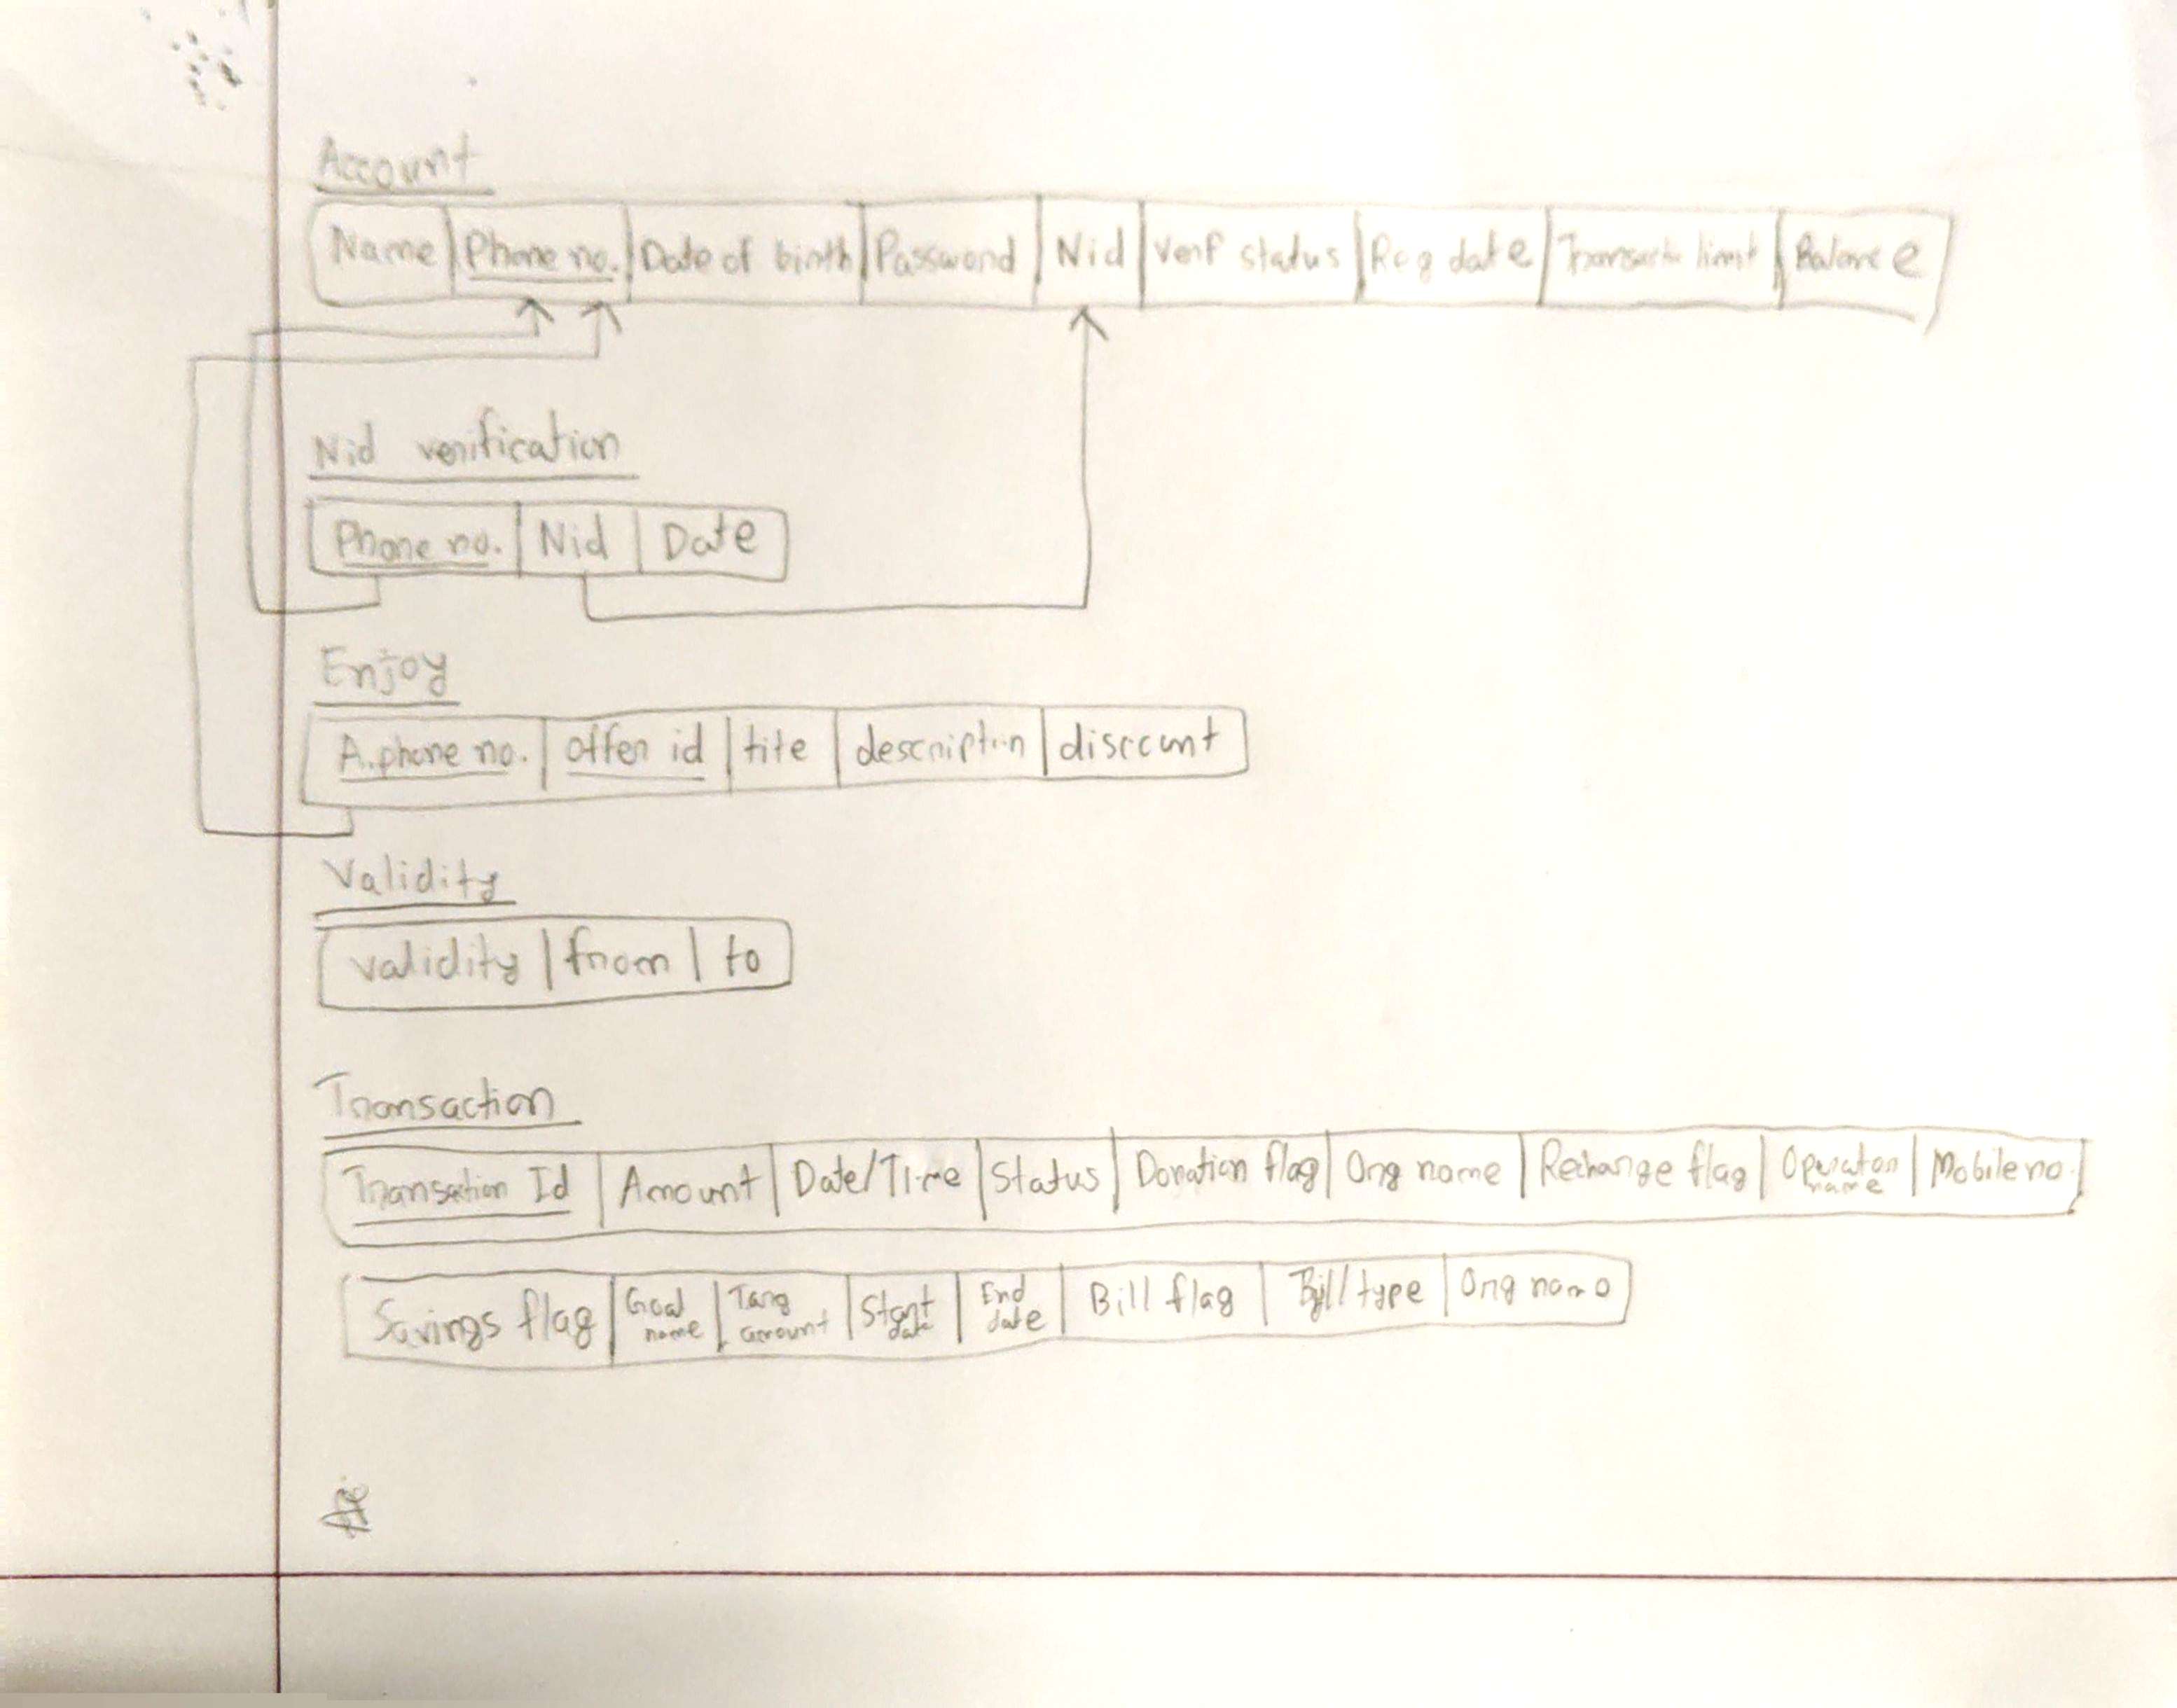 Account
Name Phone no. Date of birth Password Nid Verf status Reg date Transacti limit Balance
Nid verification
Phone no. Nid Date
Enjoy
A.phone no. offer id title description discount
Validity
validity from to
Transaction
Transaction Id Amount Date/Time Status Donation flag Org name Recharge flag Operator name Mobile no.
Savings flag Goal name Targ amount Start date End date Bill flag Bill type Org name